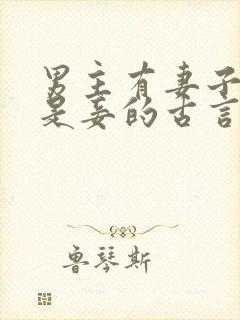 男主有妻子
是妾的古言
鲁琴斯